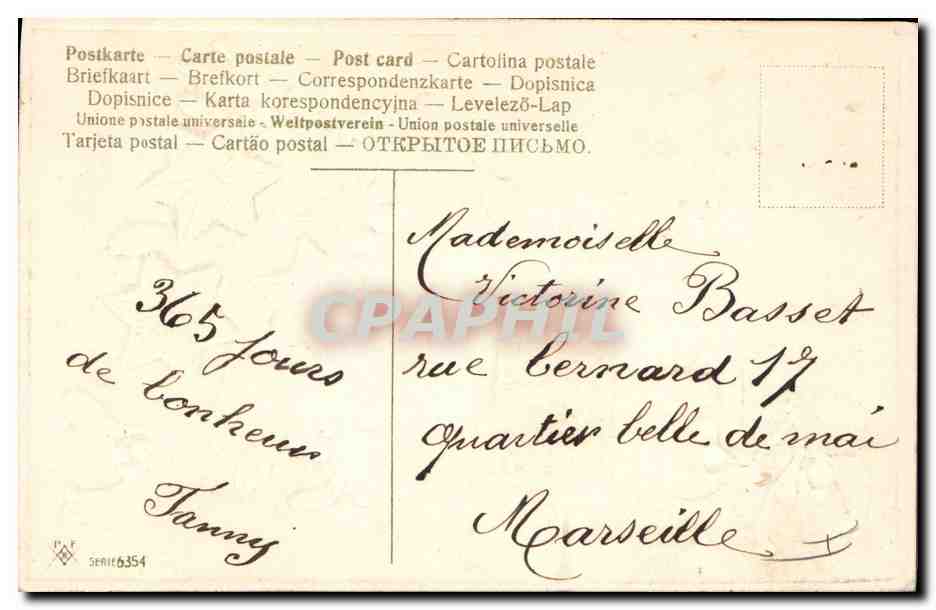 Postkarte — Carte postale — Post card — Cartolina postale
Briefkaart — Brefkort — Correspondenzkarte — Dopisnica
Dopisnice — Karta korespondencyjna — Levelező-Lap
Unione postale universale - Weltpostverein - Union postale universelle
Tarjeta postal — Cartão postal — ОТКРЫТОЕ ПИСЬМО.
365 jours
de bonheur
Fanny
Mademoiselle
Victorine Basset
rue bernard 17
quartier belle de mai
Marseille
CPAPHIL
P F B
SERIE 6354